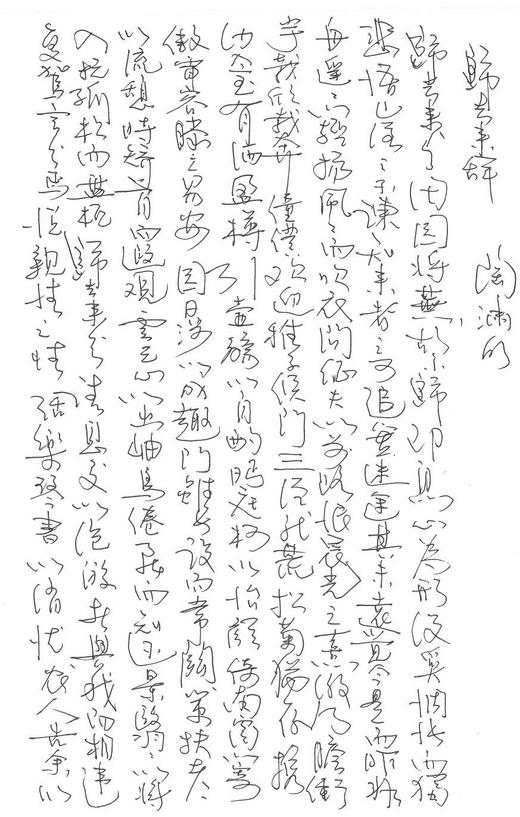 歸去来辭 陶淵明
歸去来兮田園将蕪胡歸即自以心為形役奚惆悵而獨
悲悟已往之不諫知来者之可追實迷途其未遠覺今是而昨非
舟遥々以輕颺風々而吹衣問征夫以前路恨晨光之熹微乃瞻衡
宇載欣載奔僮僕歡迎稚子候門三徑就荒松菊猶存携
幼入室有酒盈樽引壺觴以自酌眄庭柯以怡顔倚南窗以寄
傲審容膝之易安園日涉以成趣門雖設而常關策扶老
以流憩時矯首而遐觀雲無心以出岫鳥倦飛而知還景翳々以将
入撫孤松而盤桓歸去来兮請息交以絶游世與我而相違
復駕言兮焉求悦親情之情話樂琴書以消忧農人告余以